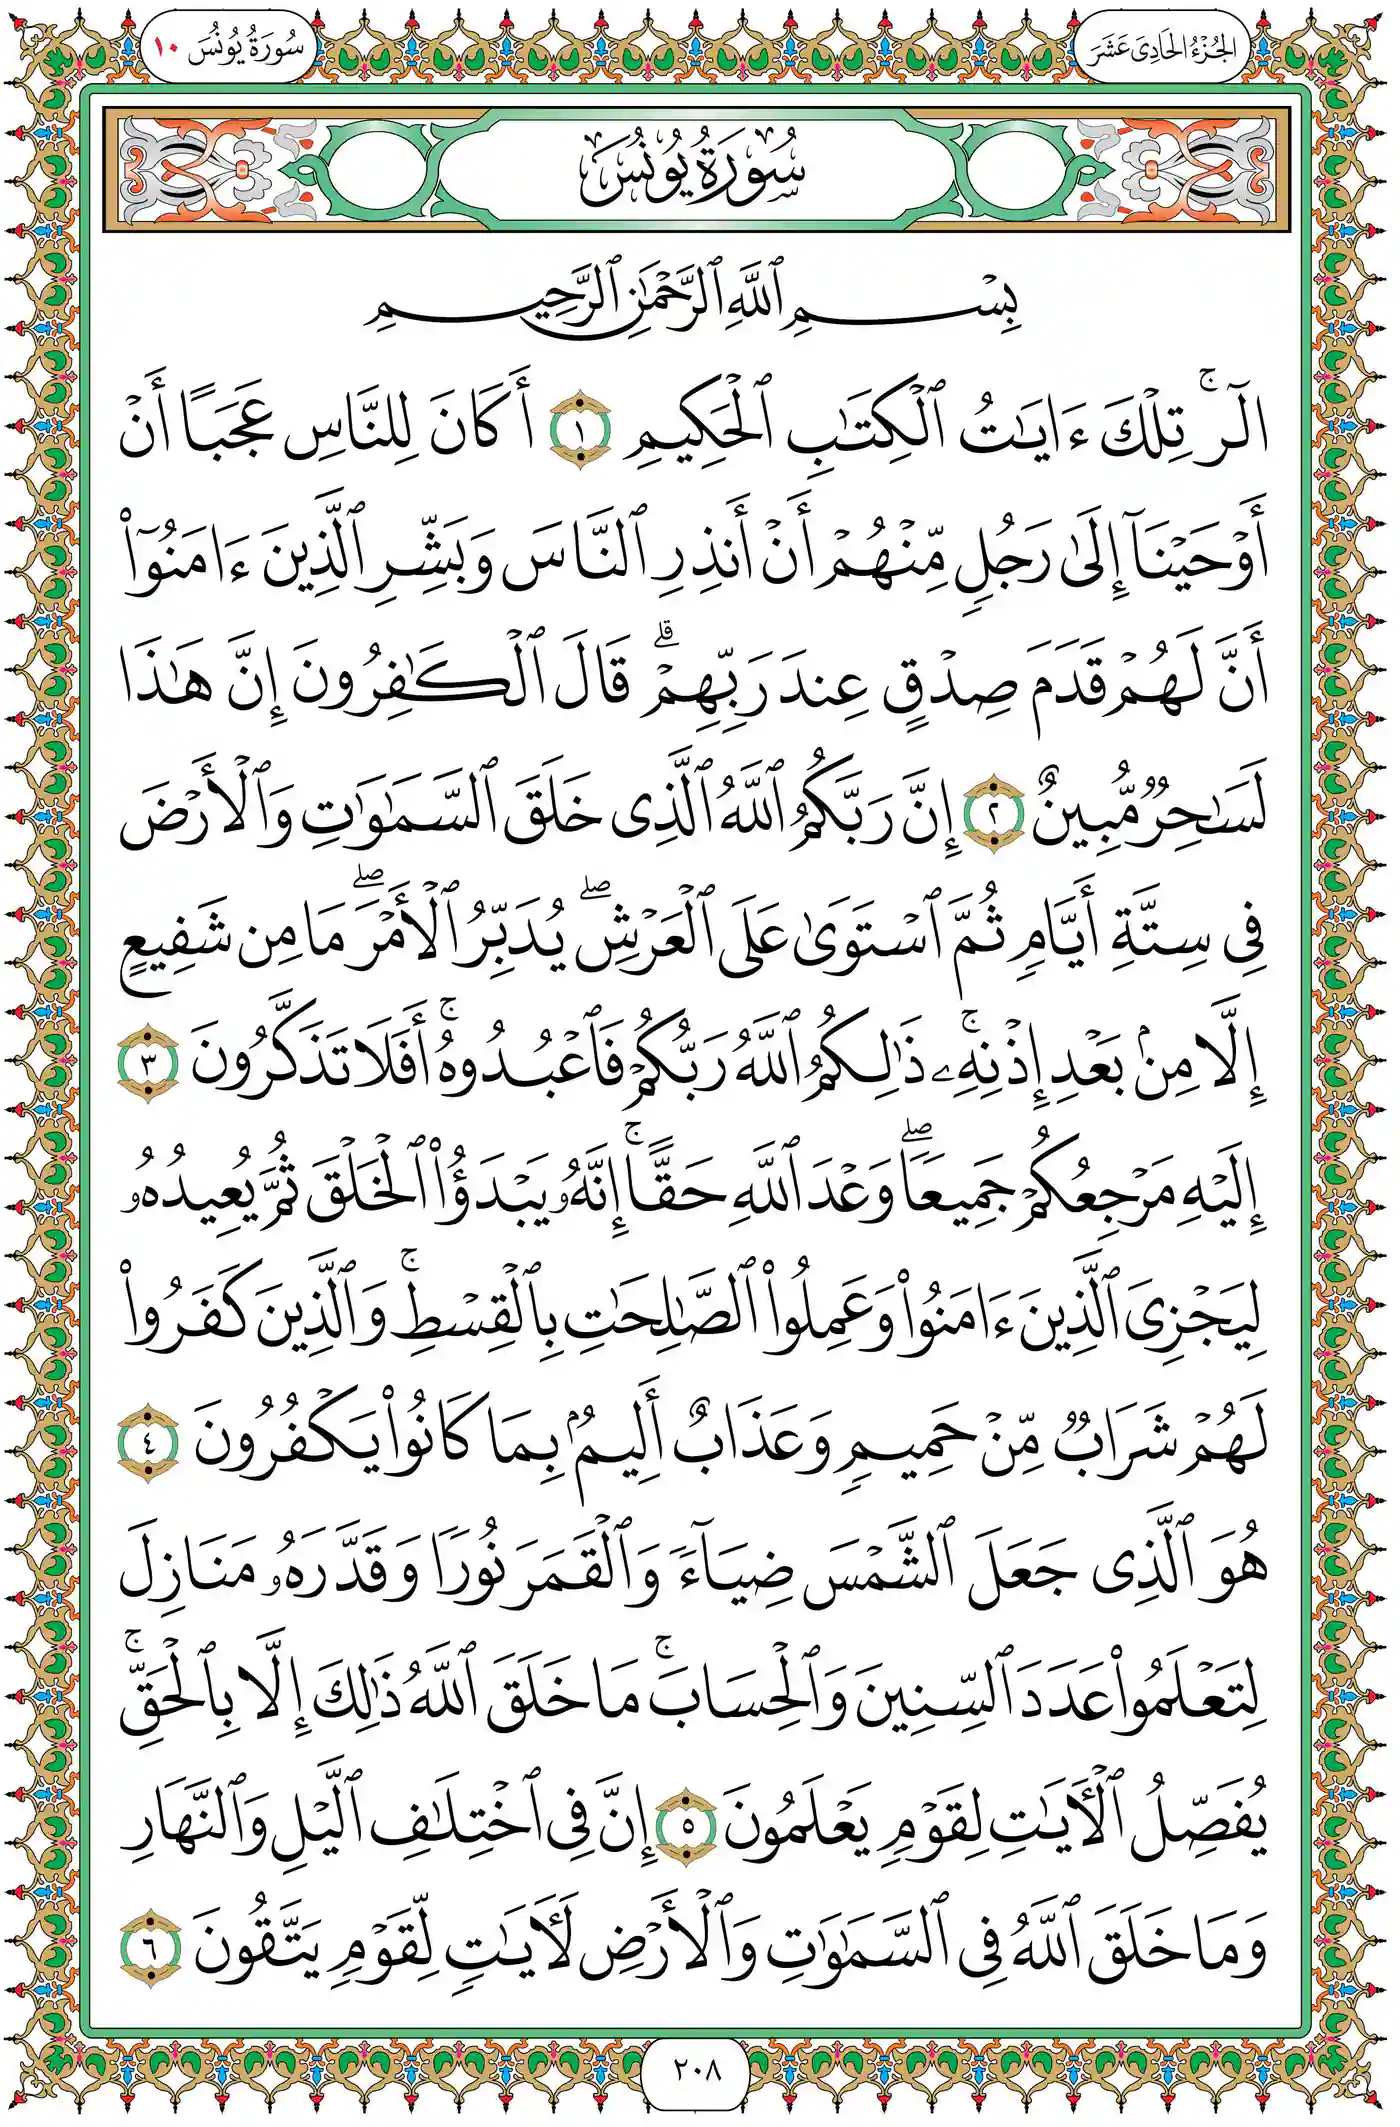 الجُزْءُ الحَادِىَ عَشَرَ
سُورَةُ يُونُسَ ١٠
سُورَةُ يُونُسَ
بِسْمِ ٱللَّهِ ٱلرَّحْمَٰنِ ٱلرَّحِيمِ
الٓرۚ تِلْكَ ءَايَٰتُ ٱلْكِتَٰبِ ٱلْحَكِيمِ ١ أَكَانَ لِلنَّاسِ عَجَبًا أَنْ
أَوْحَيْنَآ إِلَىٰ رَجُلٍ مِّنْهُمْ أَنْ أَنذِرِ ٱلنَّاسَ وَبَشِّرِ ٱلَّذِينَ ءَامَنُوٓا۟
أَنَّ لَهُمْ قَدَمَ صِدْقٍ عِندَ رَبِّهِمْۗ قَالَ ٱلْكَٰفِرُونَ إِنَّ هَٰذَا
لَسَٰحِرٌ مُّبِينٌ ٢ إِنَّ رَبَّكُمُ ٱللَّهُ ٱلَّذِى خَلَقَ ٱلسَّمَٰوَٰتِ وَٱلْأَرْضَ
فِى سِتَّةِ أَيَّامٍ ثُمَّ ٱسْتَوَىٰ عَلَى ٱلْعَرْشِۖ يُدَبِّرُ ٱلْأَمْرَۖ مَا مِن شَفِيعٍ
إِلَّا مِنۢ بَعْدِ إِذْنِهِۦۚ ذَٰلِكُمُ ٱللَّهُ رَبُّكُمْ فَٱعْبُدُوهُۚ أَفَلَا تَذَكَّرُونَ ٣
إِلَيْهِ مَرْجِعُكُمْ جَمِيعًاۖ وَعْدَ ٱللَّهِ حَقًّاۚ إِنَّهُۥ يَبْدَؤُا۟ ٱلْخَلْقَ ثُمَّ يُعِيدُهُۥ
لِيَجْزِىَ ٱلَّذِينَ ءَامَنُوا۟ وَعَمِلُوا۟ ٱلصَّٰلِحَٰتِ بِٱلْقِسْطِۚ وَٱلَّذِينَ كَفَرُوا۟
لَهُمْ شَرَابٌ مِّنْ حَمِيمٍ وَعَذَابٌ أَلِيمٌۢ بِمَا كَانُوا۟ يَكْفُرُونَ ٤
هُوَ ٱلَّذِى جَعَلَ ٱلشَّمْسَ ضِيَآءً وَٱلْقَمَرَ نُورًا وَقَدَّرَهُۥ مَنَازِلَ
لِتَعْلَمُوا۟ عَدَدَ ٱلسِّنِينَ وَٱلْحِسَابَۚ مَا خَلَقَ ٱللَّهُ ذَٰلِكَ إِلَّا بِٱلْحَقِّۚ
يُفَصِّلُ ٱلْءَايَٰتِ لِقَوْمٍ يَعْلَمُونَ ٥ إِنَّ فِى ٱخْتِلَٰفِ ٱلَّيْلِ وَٱلنَّهَارِ
وَمَا خَلَقَ ٱللَّهُ فِى ٱلسَّمَٰوَٰتِ وَٱلْأَرْضِ لَءَايَٰتٍ لِّقَوْمٍ يَتَّقُونَ ٦
٢٠٨